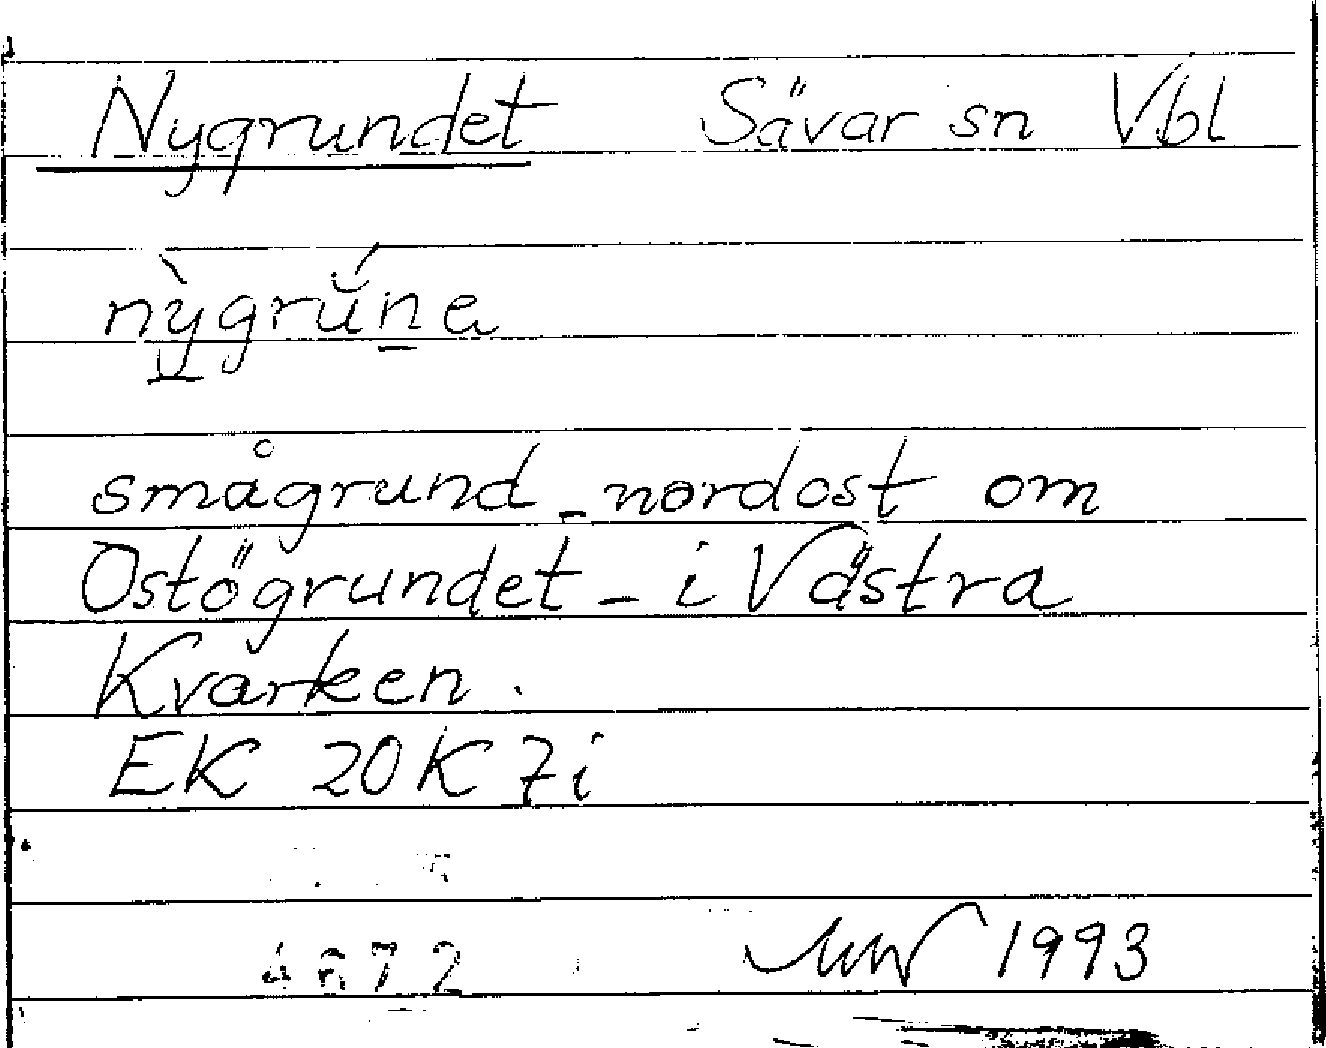 Nygrundet Sävar sn Vbl
nỳ̲grŭ́n̲a
smågrund - nordost om
Ostögrundet - i Västra
Kvarken.
EK 20K 7i
1993